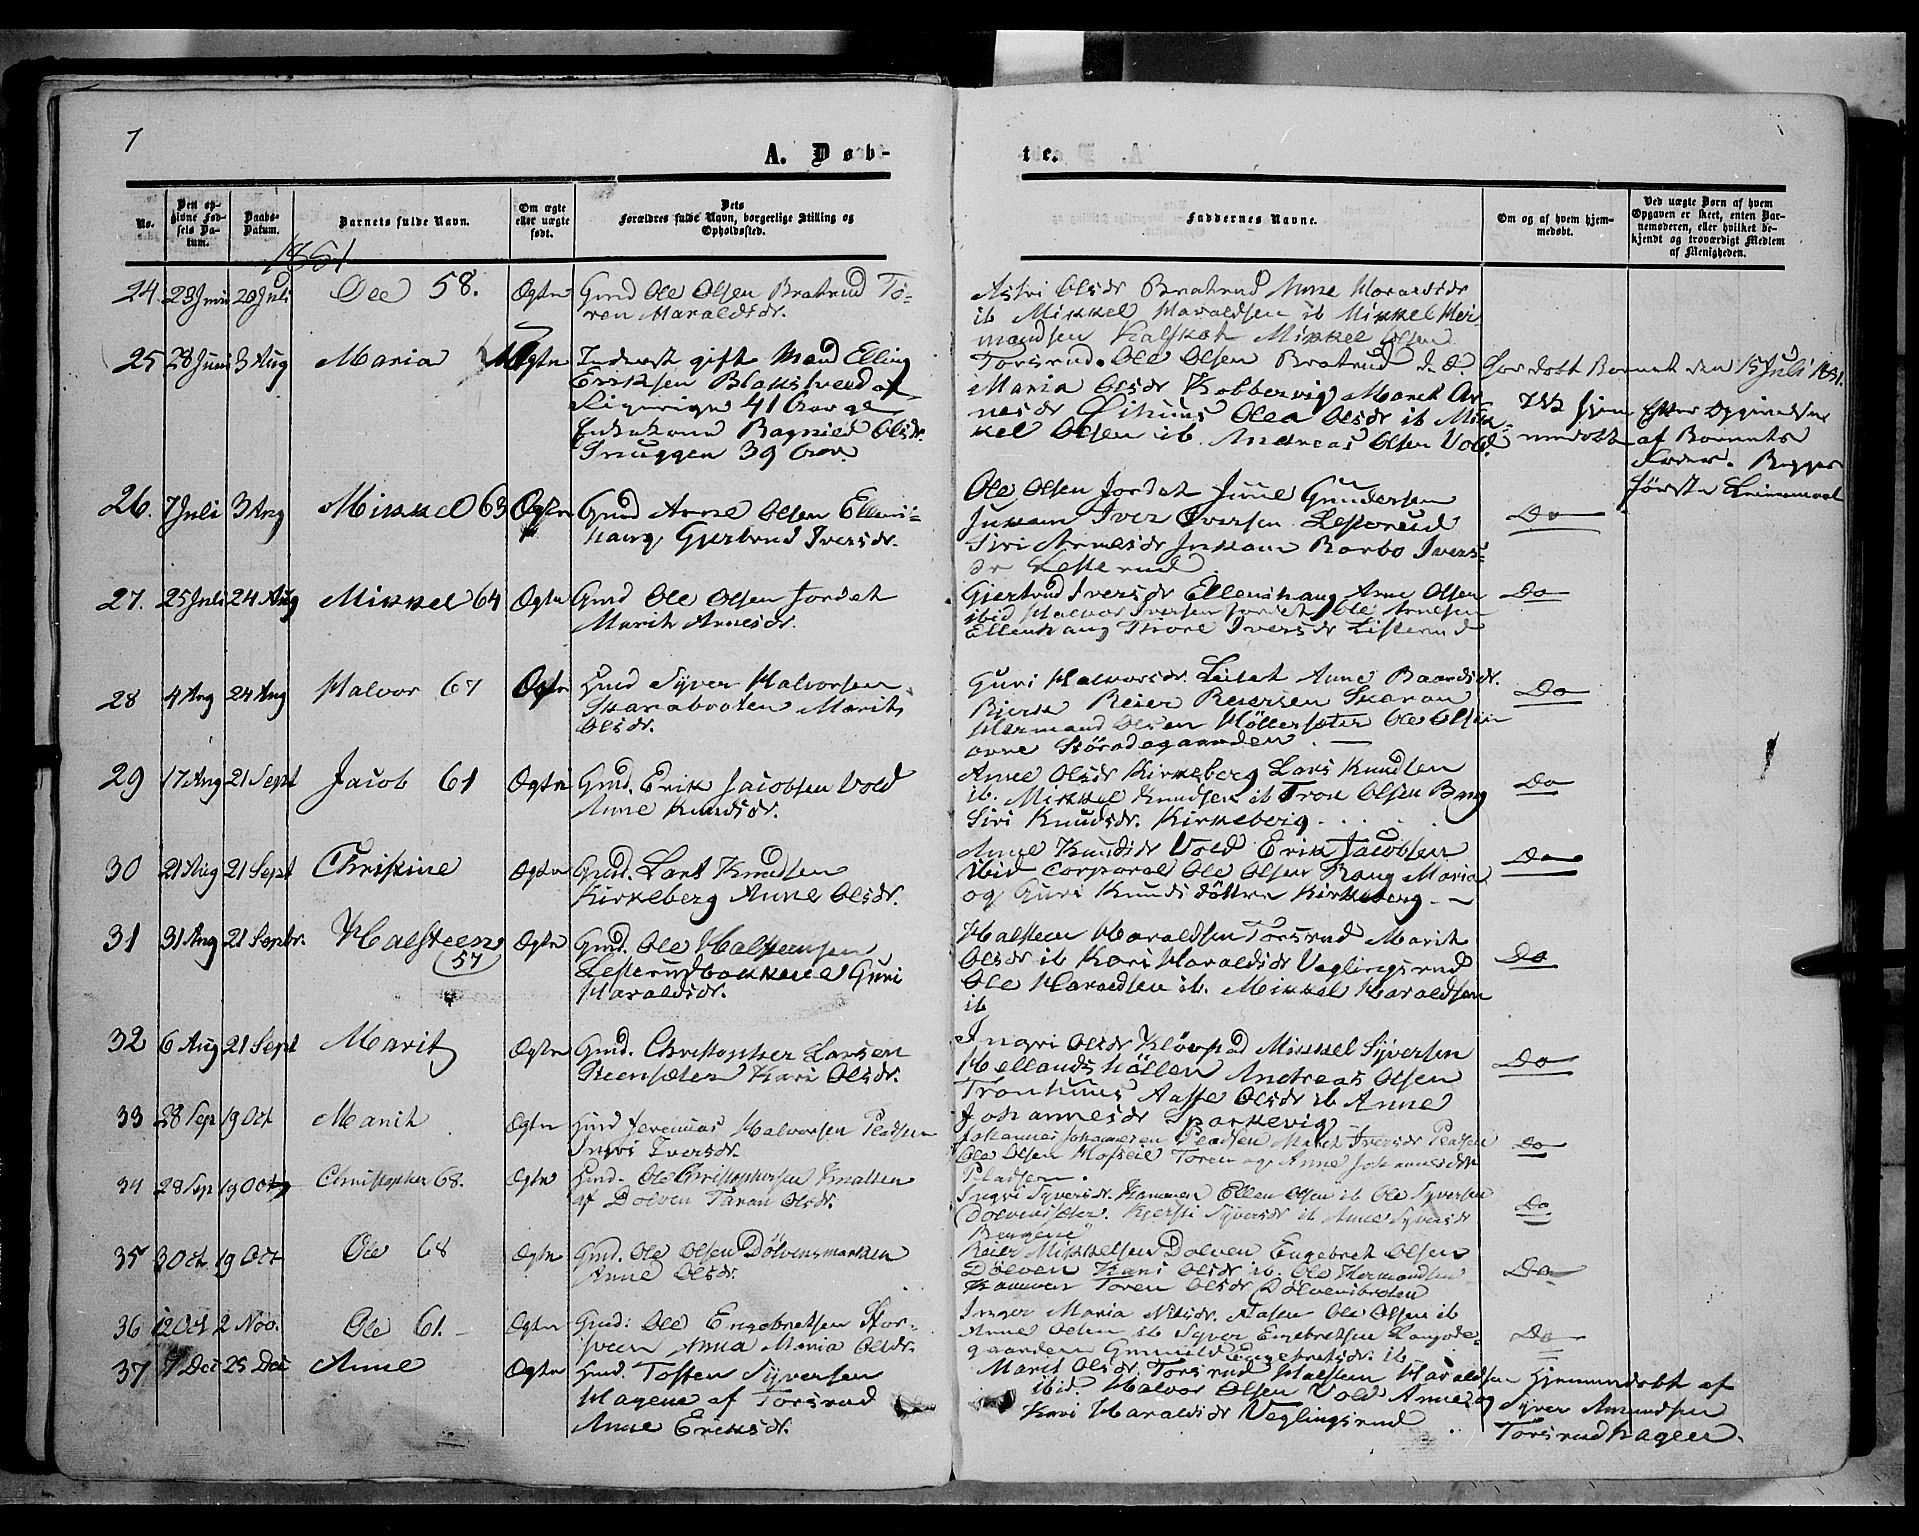 7
A. Døb-
te.
No.
Den op-
givne Fød-
sels Da-
tum.
Daabs-
Datum.
Barnets fulde Navn.
Om ægte
eller uægte
født.
Dets
Forældres fulde Navn, borgerlige Stilling og
Opholdssted.
Faddernes Navne.
Om og af hvem hjem-
medøbt.
Ved uægte Børn af hvem
Opgaven er skeet, enten Bar-
nemoderen, eller hvilket be-
kjendt og troværdigt Medlem
af Menigheden.
1851
24. 23 Juni 20 Juli Ole 58. Ægte
Gmd Ole Olsen Bratrud To-
ren Haraldsdr.
Astri Olsdr Bratrud Anne Haraldsdr
ib Mikkel Haraldsen ib Mikkel Her-
mandsen Kalskot Mikkel Olsen
Torsrud. Ole Olsen Bratrud
25 28 Juni 3 Aug Maria
Inderst gift Mand Elling
Eriksen
41 Aar
Ragnild Olsdr.
Snuggen 39 Aar.
Maria Olsdr Kobbervig Marit Ar-
nesdr Olea Olsdr ib Mik-
kel Olsen ib. Andreas Olsen Vold.
døbt Barnet den 15 Juli 1851.
hjem
medøbt
Efter Opgivelse
af Barnets
Fader. Begges
første Leiermaal
26. 7 Juli 3 Aug Mikkel 63 Ægte
Gmd Arne Olsen Ellens-
haug Gjertrud Iversdr.
Ole Olsen Jordet Juul Gundersen
Iver Iversen Lesterud
Siri Arnesdr Barbo Ivers-
dr Lesterud
Do
27. 25 Juli 24 Aug Mikkel 64 Ægte
Gmd Ole Olsen Jordet
Marit Arnesdr.
Gjertrud Iversdr Ellenshaug Arne Olsen
ibid Halvor Iversen Jordet Ole Arnesen
Ellenshaug Thore Iversdr Listerud
Do
28 4 Aug 24 Aug Halvor 67 Ægte
Gmd Syver Halvorsen
Skarabraaten Marit
Olsdr.
Guri Halvorsdr. Anne Baardsdr.
Bjerke Reier Reiersen Skaran
Hermand Olsen Høllersæter Ole Olsen
Do
29 17 Aug 21 Sept Jacob 61 Ægte
Gmd. Erik Jacobsen Vold
Anne Knudsdr.
Anne Olsdr Kirkeberg Lars Knudsen
ib. Mikkel Knudsen ib Tron Olsen Bang
Siri Knudsdr. Kirkeberg
Do
30 21 Aug 21 Sept Christine Ægte
Gmd. Lars Knudsen
Kirkeberg Anne Olsdr.
Anne Knudsdr Vold Erik Jacobsen
ibid Corporal Ole Olsen Bang Maria
og Guri Knudsdøttre Kirkeberg
Do
31 31 Aug 21 Septbr. Halsteen 57 Ægte
Gmd. Ole Halsteensen
Lesterudbakkene Guri
Haraldsdr.
Halsteen Haraldsen Torsrud Marit
Olsdr ib Kari Haraldsdr Veglingsrud
Ole Haraldsen ib. Mikkel Haraldsen
ib
Do
32 6 Aug 21 Sept Marit Ægte
Gmd. Christopher Larsen
Steensæter Kari Olsdr.
Ingri Olsdr Mikkel Syversen
Hellandshøllen Andreas Olsen
Tronhuus Aasse Olsdr ib Anne
Johannesdr Sparkevig
Do
33 28 Sep 19 Oct Marit Ægte
Gmd Jeremias Halvorsen Pladsen
Ingri Iversdr.
Johannes Johannesen Pladsen Marit Iversdr Pladsen
Ole Olsen Hofseie Toren og Anne Johannesdr
Pladsen.
Do
34 28 Sep 19 Oct Christopher 68. Ægte
Gmd. Ole Christophersen Knatten
af Dølven Taran Olsdr.
Ingri Syversdr. Kammen Ellen Olsen ib Ole Syversen
Dølvensæter. Kjersti Syversdr ib Anne Syversdr
Do
35 3 Oct 19 Oct Ole 68 Ægte
Gmd. Ole Olsen Dølvensmarken
Anne Olsdr.
Reier Mikkelsen Dølven Engebret Olsen
Dølven Kari Olsdr ib. Ole Hermandsen
Kammen Toren Olsdr Dølvensbraten
Do
36 12 Oct 2 Nov. Ole 61. Ægte
Gmd: Ole Engebretsen Stor-
sveen Anna Maria Olsdr.
Inger Maria Nilsdr. Aasen Ole Olsen ib
Anne Olsen ib Syver Engebretsen
gaarden Gunild Engebretsdr. ib
Do
37 7 Dec 25 Dec Anne Ægte
Gmd. Tosten Syversen
Hagene af Torsrud
Anne Eriksdr.
Marit Olsdr. Torsrud Halsten Haraldsen
ibid. Halvor Olsen Vold Anne og
Kari Haraldsdr Veglingsrud
Hjemmedøbt af
Syver Amundsen
Torsrudhagen.